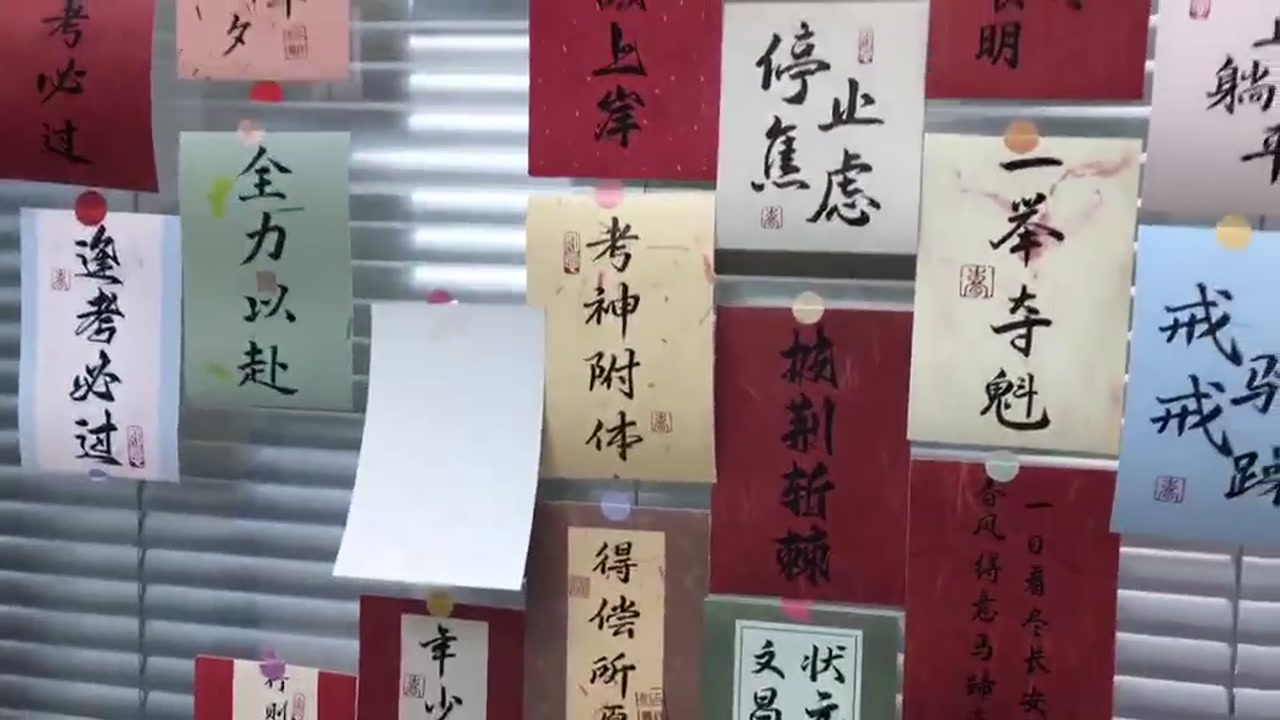 考必过
夕
上岸
停止
焦虑
明
躺平
全力以赴
逢考必过
考神附体
一举夺魁
披荆斩棘
戒骄
戒躁
得偿所愿
年少
状元
文昌
春风得意马蹄
一日看尽长安
行则